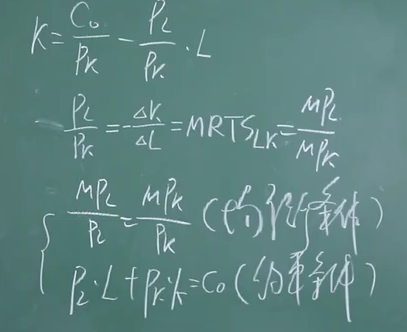 K = C₀/P_K - P_L/P_K · L
- P_L/P_K = ΔK/ΔL = MRTS_LK = MP_L/MP_K
{ MP_L/P_L = MP_K/P_K (均衡条件)
P_L·L + P_K·K = C₀ (约束条件)